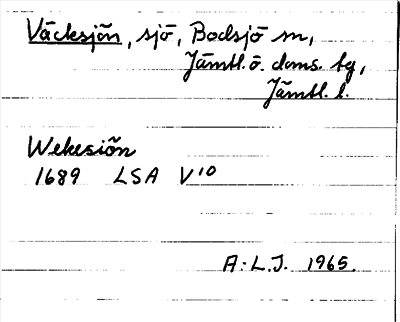 Väcksjön, sjö, Bodsjö sn,
Jämtl. ö. doms. tg,
Jämtl. l.
Wekesiön
1689 LSA V10
A.L.J. 1965.